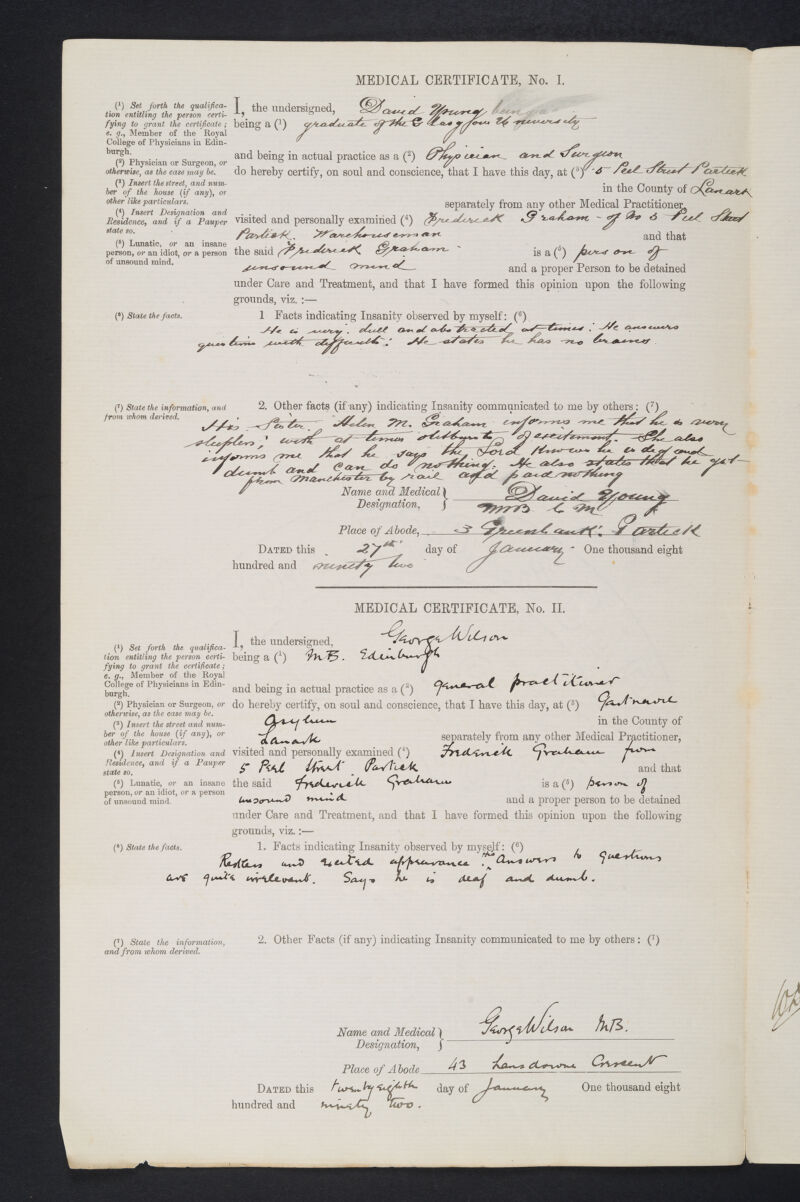 MEDICAL CERTIFICATE, No. I.
(¹) Set forth the qualifica-
tion entitling the person certi-
fying to grant the certificate;
e. g., Member of the Royal
College of Physicians in Edin-
burgh.
(²) Physician or Surgeon, or
otherwise, as the case may be.
(³) Insert the street, and num-
ber of the house (if any), or
other like particulars.
(⁴) Insert Designation and
Residence, and if a Pauper
state so.
(⁵) Lunatic, or an insane
person, or an idiot, or a person
of unsound mind.
I, the undersigned, David Young
being a (¹) graduate of the Glasgow University
and being in actual practice as a (²) Physician and Surgeon
do hereby certify, on soul and conscience, that I have this day, at (³) 5 Peel Street Partick
in the County of Lanark
separately from any other Medical Practitioner,
visited and personally examined (⁴) Frederick Graham - of No 5 Peel Street
Partick. Warehouseman and that
the said Frederick Graham is a (⁵) person of
unsound mind and a proper Person to be detained
under Care and Treatment, and that I have formed this opinion upon the following
grounds, viz. :—
(⁶) State the facts.
1 Facts indicating Insanity observed by myself: (⁶)
He is very dull and abstracted at times: He answers
questions with difficulty: He states he has no brains
(⁷) State the information, and
from whom derived.
2. Other facts (if any) indicating Insanity communicated to me by others: (⁷)
His Sister Helen M. Graham informs me that he is very
sleepless; with at times outbursts of excitement. She also
informs me that he says the Lord knows he is deaf and
dumb and can do nothing. He also states that he got
from Manchester by rail and paid nothing
Name and Medical Designation, David Young
MB CM
Place of Abode, 3 Greenbank. Partick
DATED this 27th day of January One thousand eight
hundred and ninety two
MEDICAL CERTIFICATE, No. II.
(¹) Set forth the qualifica-
tion entitling the person certi-
fying to grant the certificate;
e. g., Member of the Royal
College of Physicians in Edin-
burgh.
(²) Physician or Surgeon, or
otherwise, as the case may be.
(³) Insert the street and num-
ber of the house (if any), or
other like particulars.
(⁴) Insert Designation and
Residence, and if a Pauper
state so.
(⁵) Lunatic, or an insane
person, or an idiot, or a person
of unsound mind.
I, the undersigned, George Wilson
being a (¹) MB. Edinburgh
and being in actual practice as a (²) general practitioner
do hereby certify, on soul and conscience, that I have this day, at (³) Gartnavel
Asylum in the County of
Lanark separately from any other Medical Practitioner,
visited and personally examined (⁴) Frederick Graham from
5 Peel Street Partick and that
the said Frederick Graham is a (⁵) person of
unsound mind and a proper person to be detained
under Care and Treatment, and that I have formed this opinion upon the following
grounds, viz. :—
(⁶) State the facts.
1. Facts indicating Insanity observed by myself: (⁶)
Restless and excited appearance. His Answers to questions
are quite irrelevant. Says he is deaf and dumb.
(⁷) State the information,
and from whom derived.
2. Other Facts (if any) indicating Insanity communicated to me by others: (⁷)
Name and Medical Designation, George Wilson MB.
Place of Abode 43 Lansdowne Crescent
DATED this twenty eighth day of January One thousand eight
hundred and ninety two.